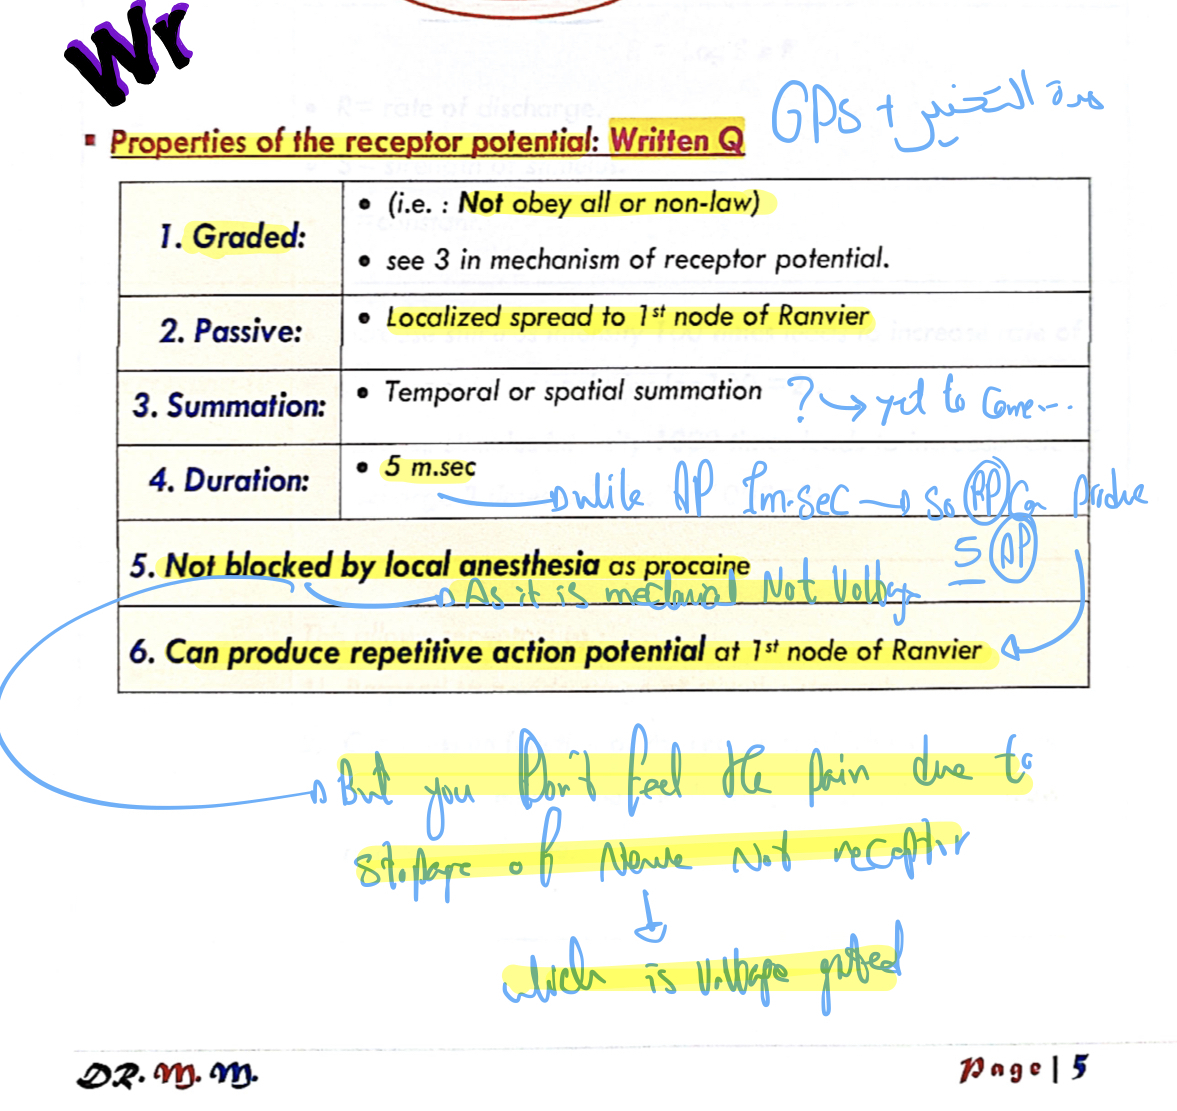 Wr
GPs + مدة التخدير
▪ Properties of the receptor potential: Written Q
1. Graded:
• (i.e. : Not obey all or non-law)
• see 3 in mechanism of receptor potential.
2. Passive:
• Localized spread to 1st node of Ranvier
3. Summation:
• Temporal or spatial summation
? → yet to Come...
4. Duration:
• 5 m.sec
→ unlike AP 1m.sec → So RP Can produce
5 AP
5. Not blocked by local anesthesia as procaine
→ As it is mechanical Not Voltage
6. Can produce repetitive action potential at 1st node of Ranvier
→ But you Don't feel the pain due to
stopage of Nerve Not receptor
↓
which is Voltage gated
DR. M. M.
Page | 5